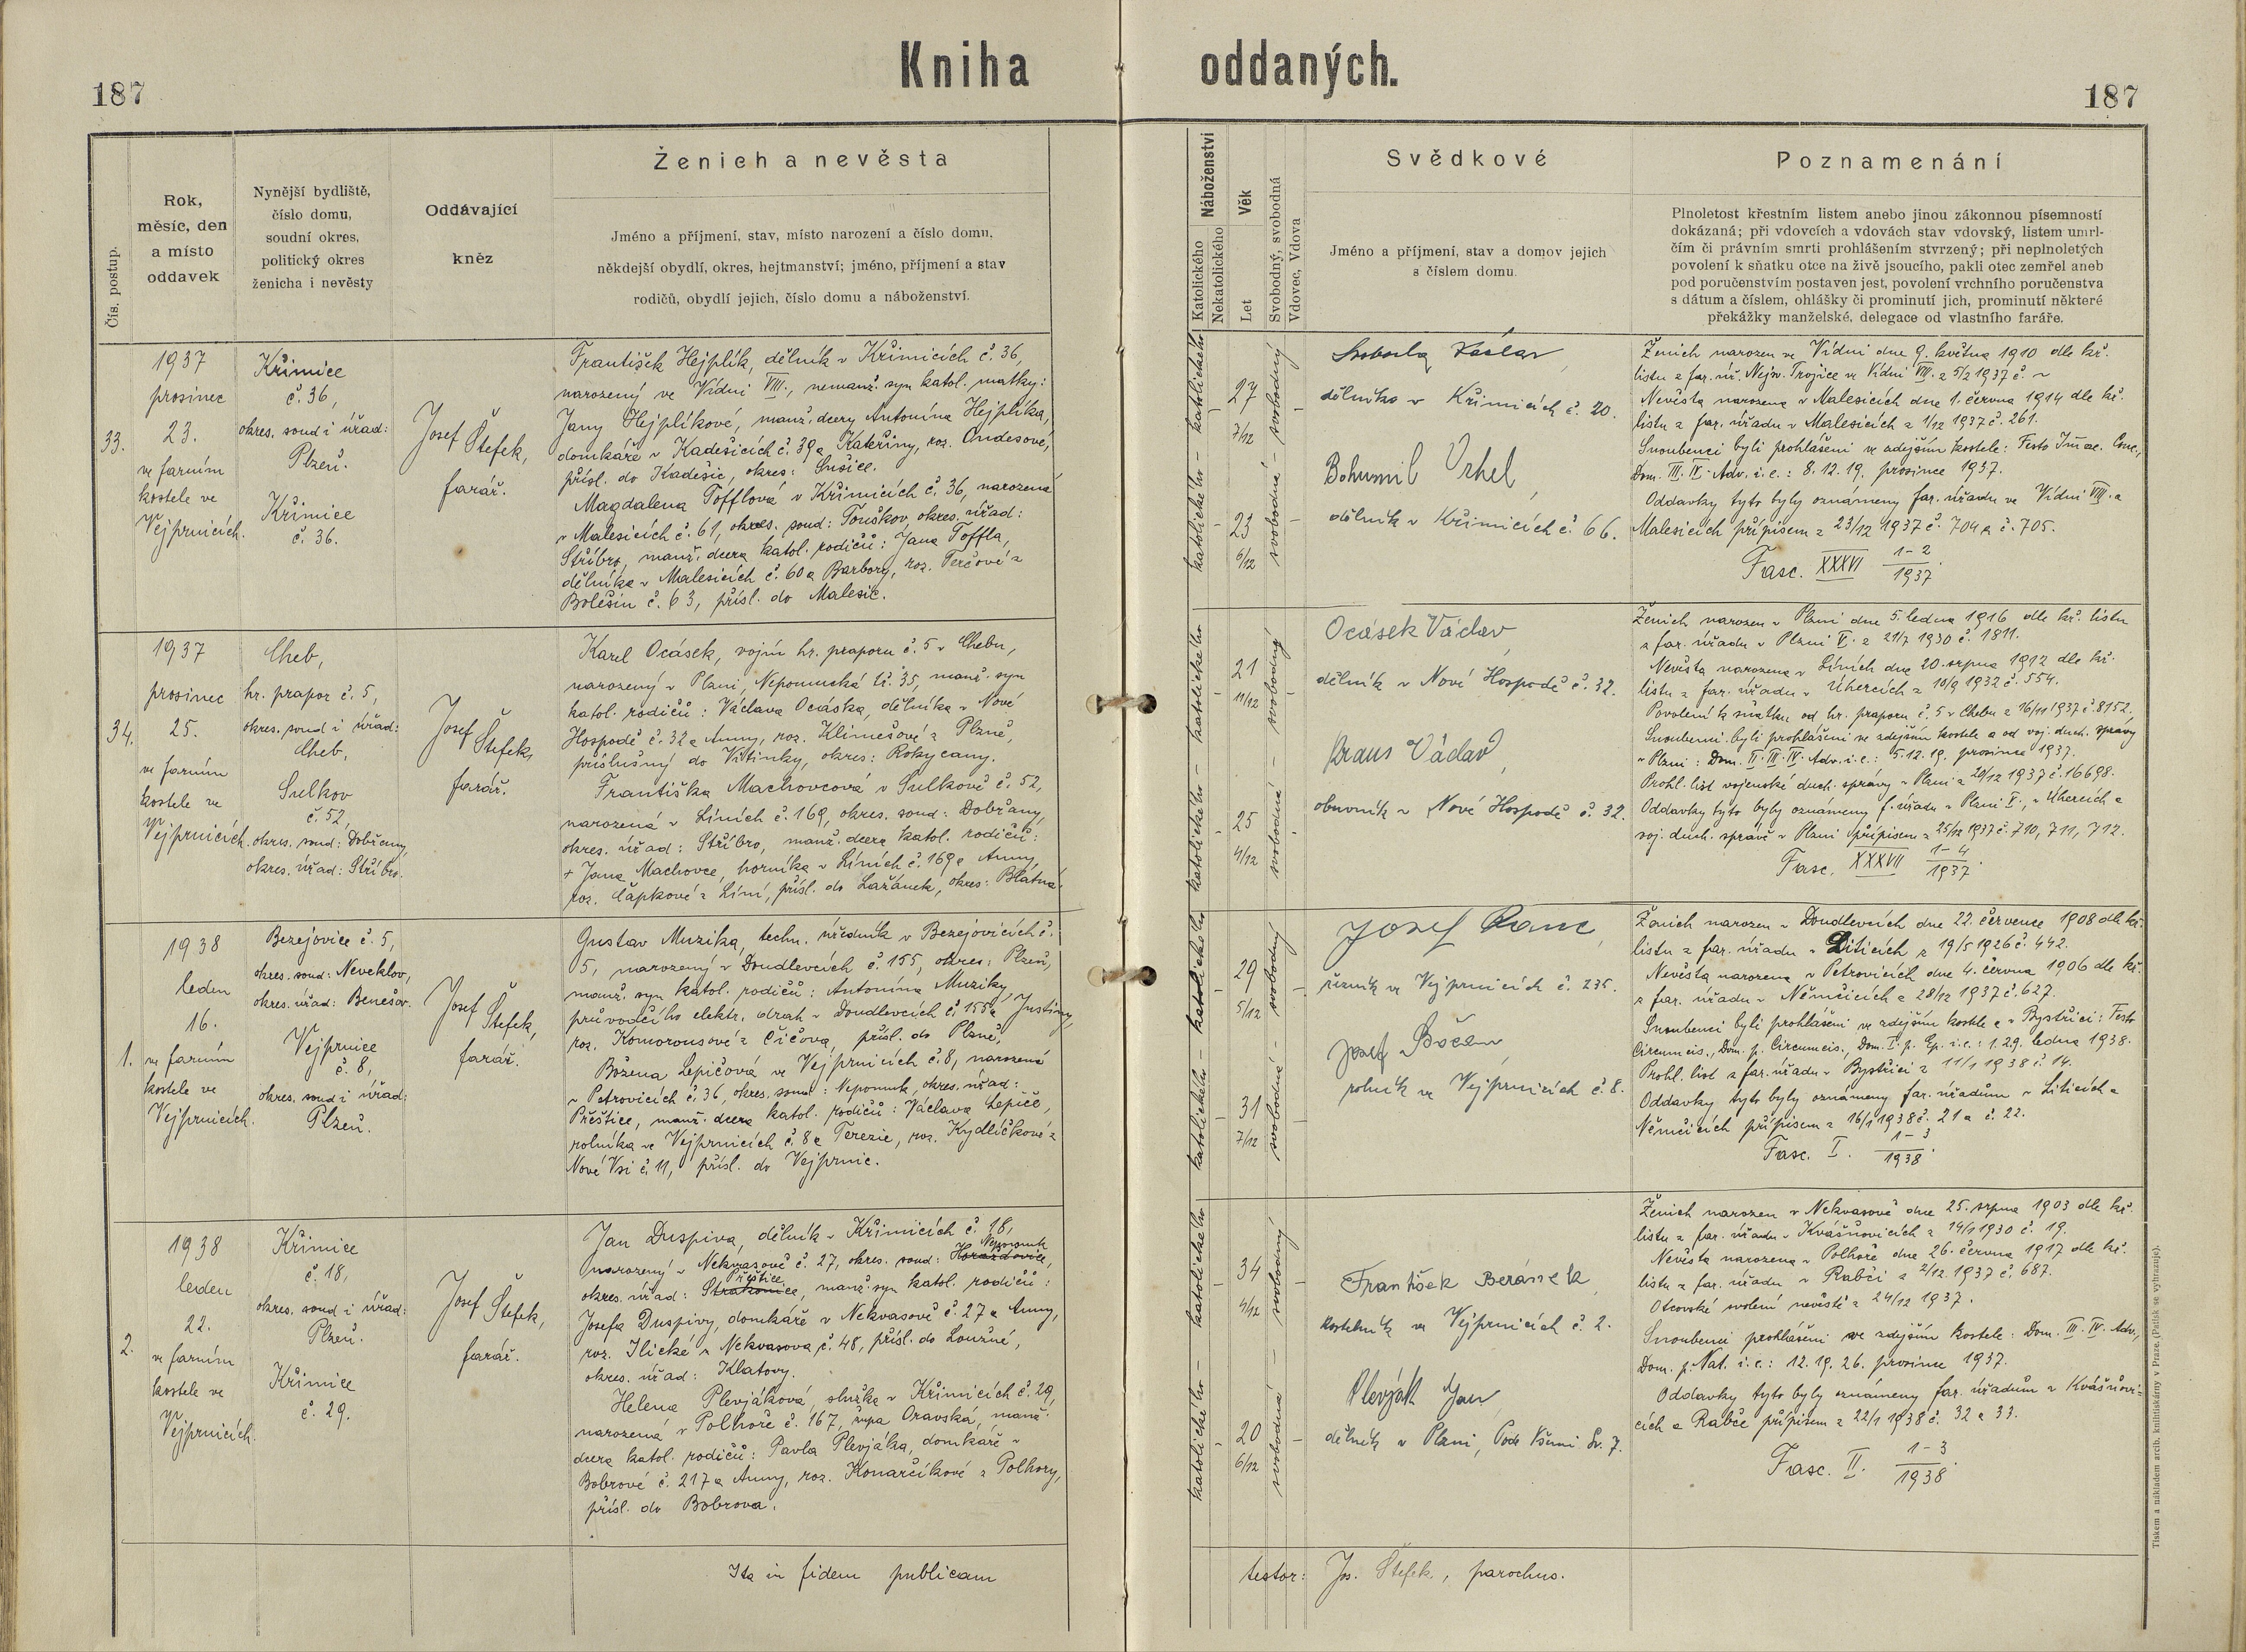 Kniha oddaných.
187
187
Čís. postup.
Rok,
měsíc, den
a místo
oddavek
Nynější bydliště,
číslo domu,
soudní okres,
politický okres
ženicha i nevěsty
Oddávající
kněz
Ženich a nevěsta
Jméno a příjmení, stav, místo narození a číslo domu,
někdejší obydlí, okres, hejtmanství; jméno, příjmení a stav
rodičů, obydlí jejich, číslo domu a náboženství.
Náboženství
Katolického
Nekatolického
Věk
Let
Svobodný, svobodná
Vdovec, Vdova
Svědkové
Jméno a příjmení, stav a domov jejich
s číslem domu.
Poznamenání
Plnoletost křestním listem anebo jinou zákonnou písemností
dokázaná; při vdovcích a vdovách stav vdovský, listem umrl-
čím či právním smrti prohlášením stvrzený; při neplnoletých
povolení k sňatku otce na živě jsoucího, pakli otec zemřel aneb
pod poručenstvím postaven jest, povolení vrchního poručenstva
s dátum a číslem, ohlášky či prominutí jich, prominutí některé
překážky manželské, delegace od vlastního faráře.
33.
1937
prosinec
23.
ve farním
kostele ve
Vejprnicích.
Křimice
č. 36,
okres. soud i úřad:
Plzeň.
Křimice
č. 36.
Josef Štefek,
farář.
František Hejplík, dělník v Křimicích č. 36,
narozený ve Vídni VIII., nemanž. syn katol. matky:
Jany Hejplíkové, manž. dcery Antonína Hejplíka,
domkáře v Kadešicích č. 39 a Kateřiny, roz. Ondesové,
přísl. do Kadešic, okres: Sušice.
Magdalena Tofflová v Křimicích č. 36, narozená
v Malesicích č. 61, okres. soud: Touškov, okres. úřad:
Stříbro, manž. dcera katol. rodičů: Jana Toffla,
dělníka v Malesicích č. 60 a Barbory, roz. Terčové z
Bolešin č. 63, přísl. do Malesic.
katolického - katolického -
27
7/12
23
6/12
svobodný
svobodná
Svoboda Václav,
dělník v Křimicích č. 20.
Bohumil Vrhel,
dělník v Křimicích č. 66.
Ženich narozen ve Vídni dne 9. května 1910 dle kř.
listu z far. úř. Nejsv. Trojice ve Vídni VIII. z 5/2 1937 č. ~
Nevěsta narozena v Malesicích dne 1. června 1914 dle kř.
listu z far. úřadu v Malesicích z 1/12 1937 č. 261.
Snoubenci byli prohlášeni ve zdejším kostele: Festo Imac. Conc.,
Dom. III. IV. Adv. i. e.: 8. 12. 19. prosince 1937.
Oddavky tyto byly oznámeny far. úřadu ve Vídni VIII. a
Malesicích přípisem z 23/12 1937 č. 704 a č. 705.
Fasc. XXXVI 1-2/1937.
34.
1937
prosinec
25.
ve farním
kostele ve
Vejprnicích.
Cheb,
hr. prapor č. 5,
okres. soud i úřad:
Cheb,
Sulkov
č. 52,
okres. soud: Dobřany,
okres. úřad: Stříbro.
Josef Štefek,
farář.
Karel Ocásek, vojín hr. praporu č. 5 v Chebu,
narozený v Plzni, Nepomucká tř. 35, manž. syn
katol. rodičů: Václava Ocáska, dělníka v Nové
Hospodě č. 32 a Anny, roz. Klimešové z Plzně,
příslušný do Vitinky, okres: Rokycany.
Františka Machovcová v Sulkově č. 52,
narozená v Líních č. 169, okres. soud: Dobřany,
okres. úřad: Stříbro, manž. dcera katol. rodičů:
+ Jana Machovce, horníka v Líních č. 169 a Anny,
roz. Čapkové z Líní, přísl. do Lažánek, okres: Blatná.
katolického - katolického
21
11/12
25
4/12
svobodný
svobodná
Ocásek Václav,
dělník v Nové Hospodě č. 32.
Kraus Václav,
obuvník v Nové Hospodě č. 32.
Ženich narozen v Plzni dne 5. ledna 1916 dle kř. listu
z far. úřadu v Plzni V. z 21/7 1930 č. 1811.
Nevěsta narozena v Líních dne 20. srpna 1912 dle kř.
listu z far. úřadu v Úhercích z 10/9 1932 č. 554.
Povolení k sňatku od hr. praporu č. 5 v Chebu z 16/11 1937 č. 8152.
Snoubenci byli prohlášeni ve zdejším kostele a od voj. duch. správy
v Plzni: Dom. II. III. IV. Adv. i. e.: 5. 12. 19. prosince 1937.
Prohl. list vojenské duch. správy v Plzni z 20/12 1937 č. 16698.
Oddavky tyto byly oznámeny f. úřadu v Plzni V., v Úhercích a
voj. duch. správě v Plzni přípisem z 25/12 1937 č. 710, 711, 712.
Fasc. XXXVII 1-4/1937.
1.
1938
leden
16.
ve farním
kostele ve
Vejprnicích.
Bezejovice č. 5,
okres. soud: Neveklov,
okres. úřad: Benešov.
Vejprnice
č. 8,
okres. soud i úřad:
Plzeň.
Josef Štefek,
farář.
Gustav Muzika, techn. úředník v Bezejovicích č.
5, narozený v Doudlevcích č. 155, okres: Plzeň,
manž. syn katol. rodičů: Antonína Muziky,
průvodčího elektr. drah v Doudlevcích č. 155 a Justiny,
roz. Komorousové z Čičova, přísl. do Plzně,
Božena Lepičová ve Vejprnicích č. 8, narozená
v Petrovicích č. 36, okres. soud: Nepomuk, okres. úřad:
Přeštice, manž. dcera katol. rodičů: Václava Lepiče,
rolníka ve Vejprnicích č. 8 a Terezie, roz. Kydlíčkové z
Nové Vsi č. 11, přísl. do Vejprnic.
katolického - katolického
29
5/12
31
7/12
svobodný
svobodná
Josef
řezník ve Vejprnicích č. 235.
Josef
rolník ve Vejprnicích č. 8.
Ženich narozen v Doudlevcích dne 22. července 1908 dle kř.
listu z far. úřadu v Liticích z 19/5 1926 č. 442.
Nevěsta narozena v Petrovicích dne 4. června 1906 dle kř.
z far. úřadu v Němčicích z 28/12 1937 č. 627.
Snoubenci byli prohlášeni ve zdejším kostele a v Bystřici: Festo
Circumcis., Dom. p. Circumcis., Dom. I. p. Ep. i. e.: 1. 2. 9. ledna 1938.
Prohl. list z far. úřadu v Bystřici z 11/1 1938 č. 14.
Oddavky tyto byly oznámeny far. úřadům v Liticích a
Němčicích přípisem z 16/1 1938 č. 21 a č. 22.
Fasc. I. 1-3/1938.
2.
1938
leden
22.
ve farním
kostele ve
Vejprnicích.
Křimice
č. 18,
okres. soud i úřad:
Plzeň.
Křimice
č. 29.
Josef Štefek,
farář.
Jan Duspiva, dělník v Křimicích č. 18,
Nepomuk
narozený v Nekvasově č. 27, okres. soud: Horažďovice,
Přeštice
okres. úřad: Strakonice, manž. syn katol. rodičů:
Josefa Duspivy, domkáře v Nekvasově č. 27 a Anny,
roz. Jlické z Nekvasova č. 48, přísl. do Loužné,
okres. úřad: Klatovy.
Helena Plevjáková, služka v Křimicích č. 29,
narozená v Polhoře č. 167, župa Oravská, manž.
dcera katol. rodičů: Pavla Plevjáka, domkáře v
Bobrově č. 217 a Anny, roz. Konarčíkové z Polhory,
přísl. do Bobrova.
katolického - katolického
34
4/12
20
6/12
svobodný
svobodná
František Beránek,
kostelník ve Vejprnicích č. 2.
Plevják Jan,
dělník v Plzni, Pode Všemi Sv. 7.
Ženich narozen v Nekvasově dne 25. srpna 1903 dle kř.
listu z far. úřadu v Kvášňovicích z 14/1 1930 č. 19.
Nevěsta narozena v Polhoře dne 26. června 1917 dle kř.
listu z far. úřadu v Rabči z 2/12 1937 č. 687.
Otcovské svolení nevěstě z 24/12 1937.
Snoubenci prohlášeni ve zdejším kostele: Dom. III. IV. Adv.,
Dom. p. Nat. i. e.: 12. 19. 26. prosince 1937.
Oddavky tyto byly oznámeny far. úřadům v Kvášňovi-
cích a Rabče přípisem z 22/1 1938 č. 32 a 33.
Fasc. II. 1-3/1938.
Ita in fidem publicam testor: Jos. Štefek, parochus.
Tiskem a nákladem arcib. knihtiskárny v Praze. (Patisk se vyhrazuje).